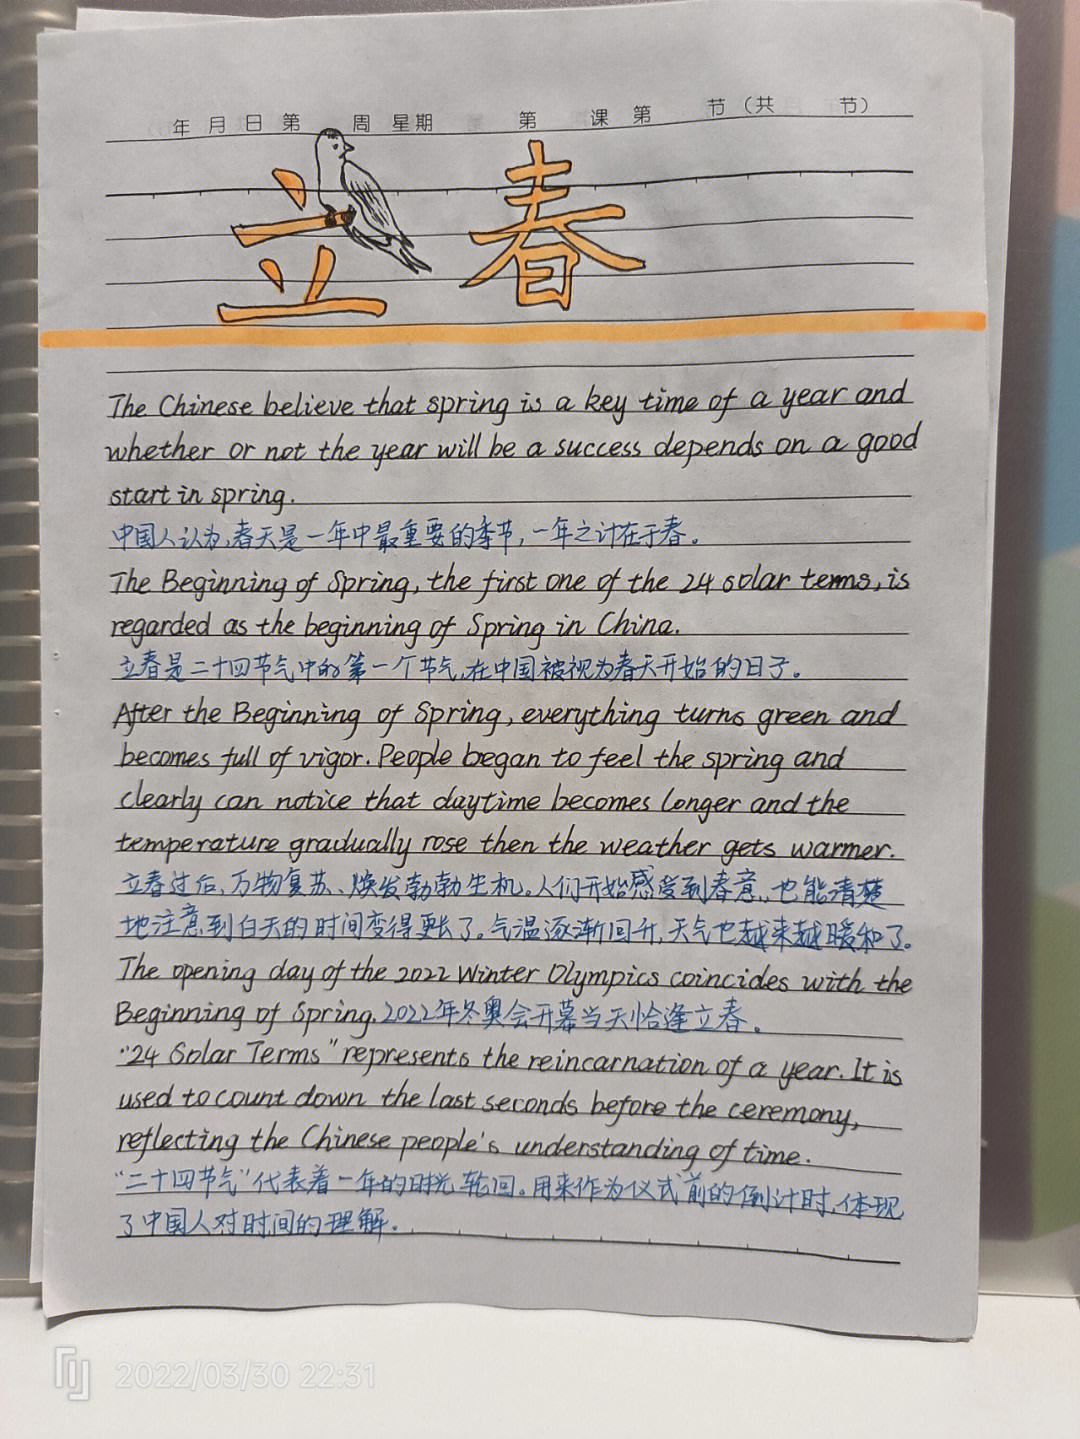 年 月 日 第 周 星期 第 课 第 节（共 节）
立春
The Chinese believe that spring is a key time of a year and
whether or not the year will be a success depends on a good
start in spring.
中国人认为,春天是一年中最重要的季节,一年之计在于春。
The Beginning of Spring, the first one of the 24 solar terms, is
regarded as the beginning of Spring in China.
立春是二十四节气中的第一个节气,在中国被视为春天开始的日子。
After the Beginning of Spring, everything turns green and
becomes full of vigor. People began to feel the spring and
clearly can notice that daytime becomes longer and the
temperature gradually rose then the weather gets warmer.
立春过后,万物复苏、焕发勃勃生机。人们开始感受到春意,,也能清楚
地注意到白天的时间变得更长了。气温逐渐回升,天气也越来越暖和了。
The opening day of the 2022 Winter Olympics coincides with the
Beginning of Spring. 2022年冬奥会开幕当天恰逢立春。
"24 Solar Terms" represents the reincarnation of a year. It is
used to count down the last seconds before the ceremony,
reflecting the Chinese people's understanding of time.
"二十四节气"代表着一年的时光轮回。用来作为仪式前的倒计时,体现
了中国人对时间的理解。
2022/03/30 22:31